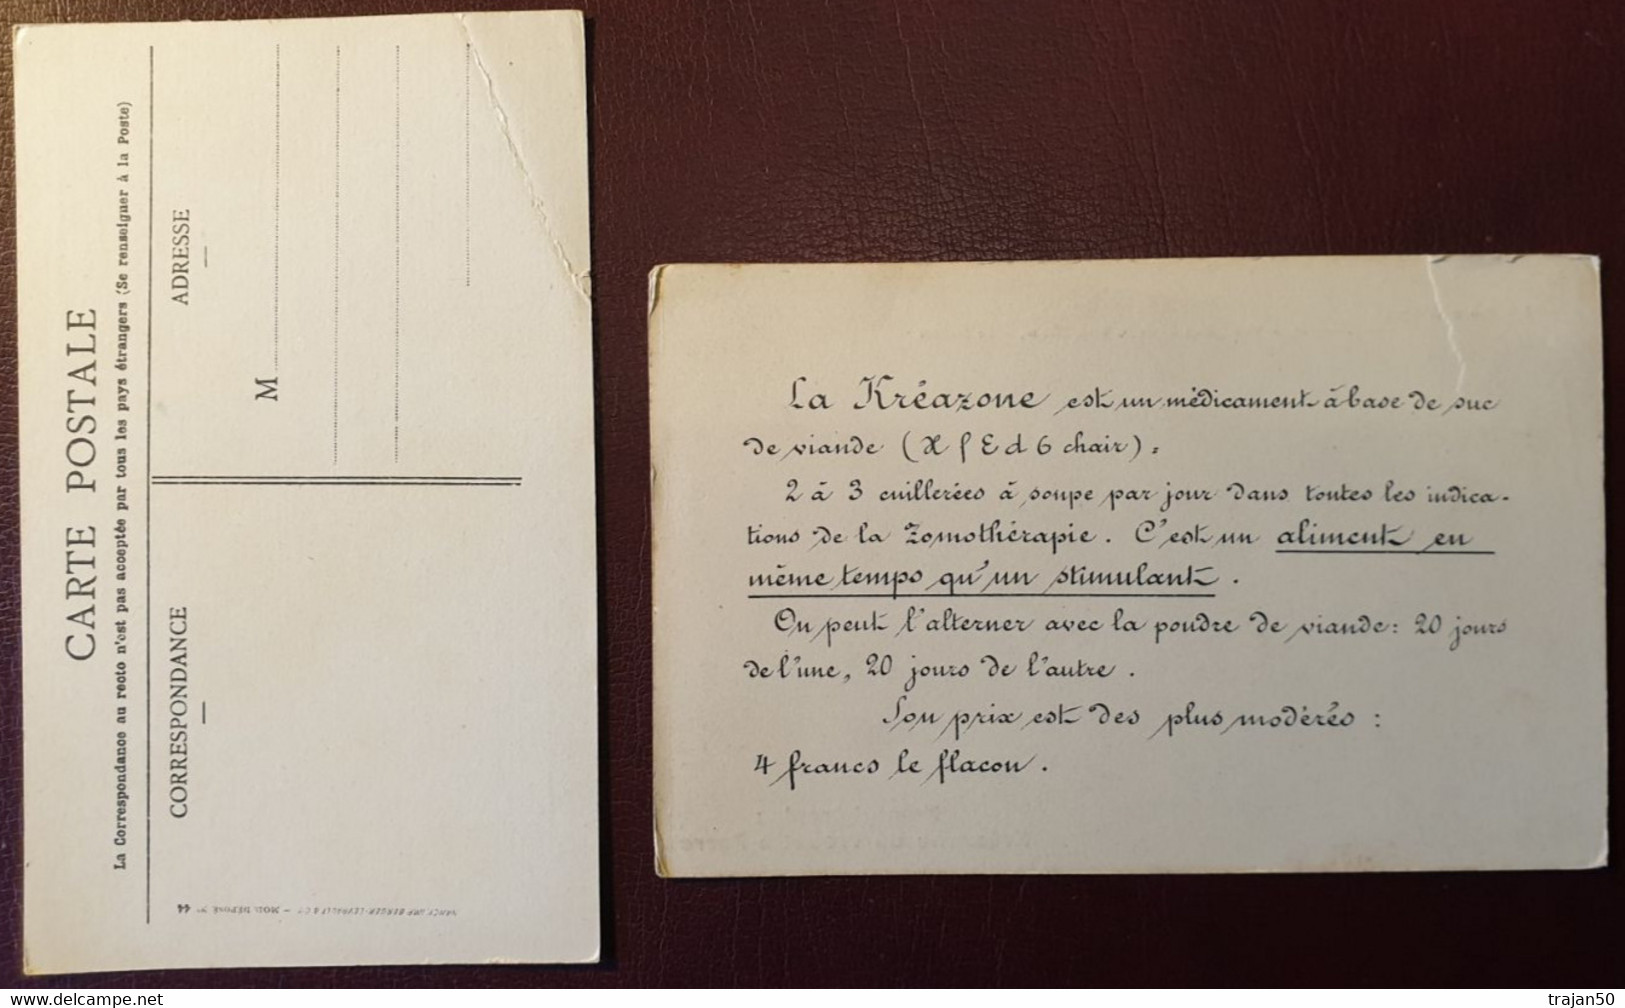 CARTE POSTALE
La Correspondance au recto n'est pas acceptée par tous les pays étrangers (Se renseigner à la Poste)
CORRESPONDANCE
ADRESSE
M
NANCY, IMP. BERGER-LEVRAULT & Cie — MOD. DÉPOSÉ N° 44
La Kréazone est un médicament à base de suc
de viande ( chair) :
2 à 3 cuillerées à soupe par jour dans toutes les indica-
tions de la Zomothérapie. C'est un aliment en
même temps qu'un stimulant.
On peut l'alterner avec la poudre de viande : 20 jours
de l'une, 20 jours de l'autre.
Son prix est des plus modérés :
4 francs le flacon.
delcampe.net
trajan50